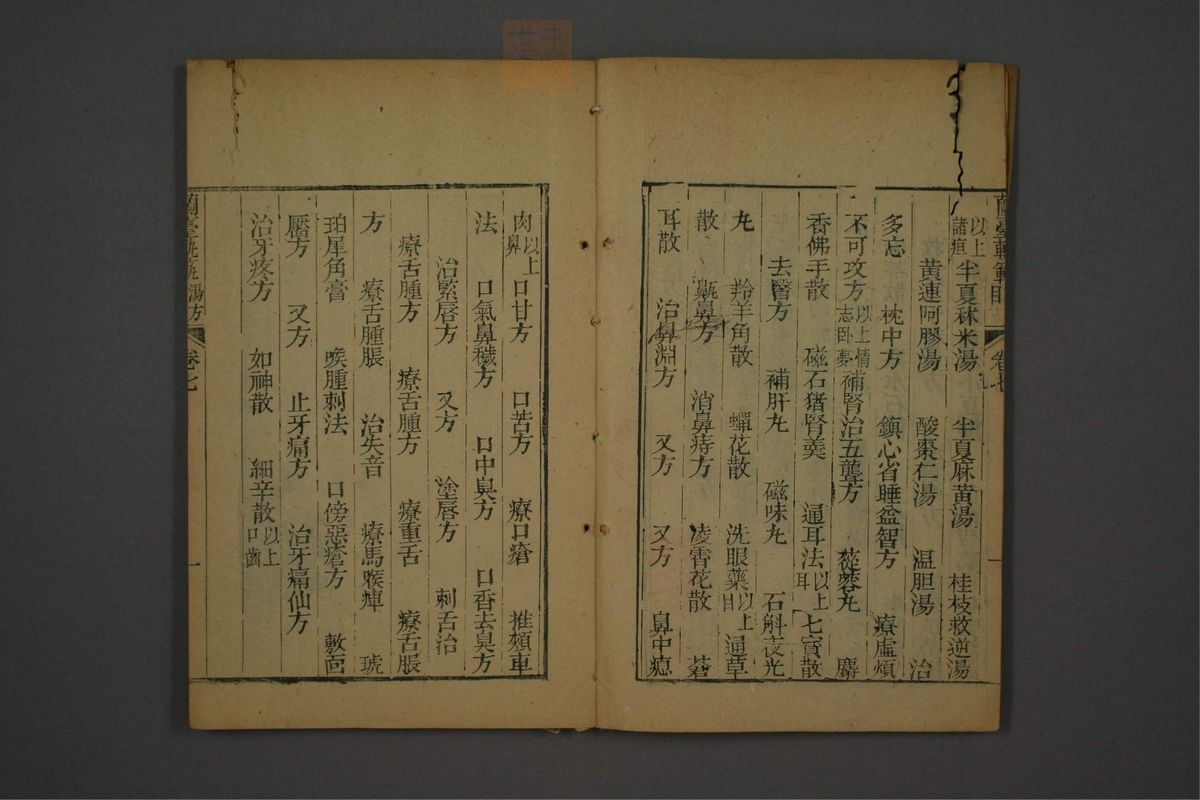 以上諸疸 半夏秫米湯 半夏麻黃湯 桂枝救逆湯
黃連阿膠湯 酸棗仁湯 温胆湯 治
多忘 枕中方 鎮心省睡益智方 療虛煩
不可攻方 以上情志卧夢 補腎治五聾方 蓯蓉丸 麝
香佛手散 磁石猪腎羮 通耳法 以上耳 七寳散
去瞖方 補肝丸 磁味丸 石斛夜光
丸 羚羊角散 蟬花散 洗眼藥 以上目 通草
散 鼽鼻方 消鼻痔方 凌霄花散 蒼
耳散 治鼻淵方 又方 又方 鼻中瘜
肉 以上鼻 口甘方 口苦方 療口瘡 推頰車
法 口氣鼻穢方 口中臭方 口香去臭方
治緊唇方 又方 塗唇方 刺舌治
療舌腫方 療舌腫方 療重舌 療舌脹
方 療舌腫脹 治失音 療馬喉痺 琥
珀犀角膏 喉腫刺法 口傍惡瘡方 敷面
靨方 又方 止牙痛方 治牙痛仙方
治牙疼方 如神散 細辛散 以上口齒
蘭臺軌範 湯方 卷七 一